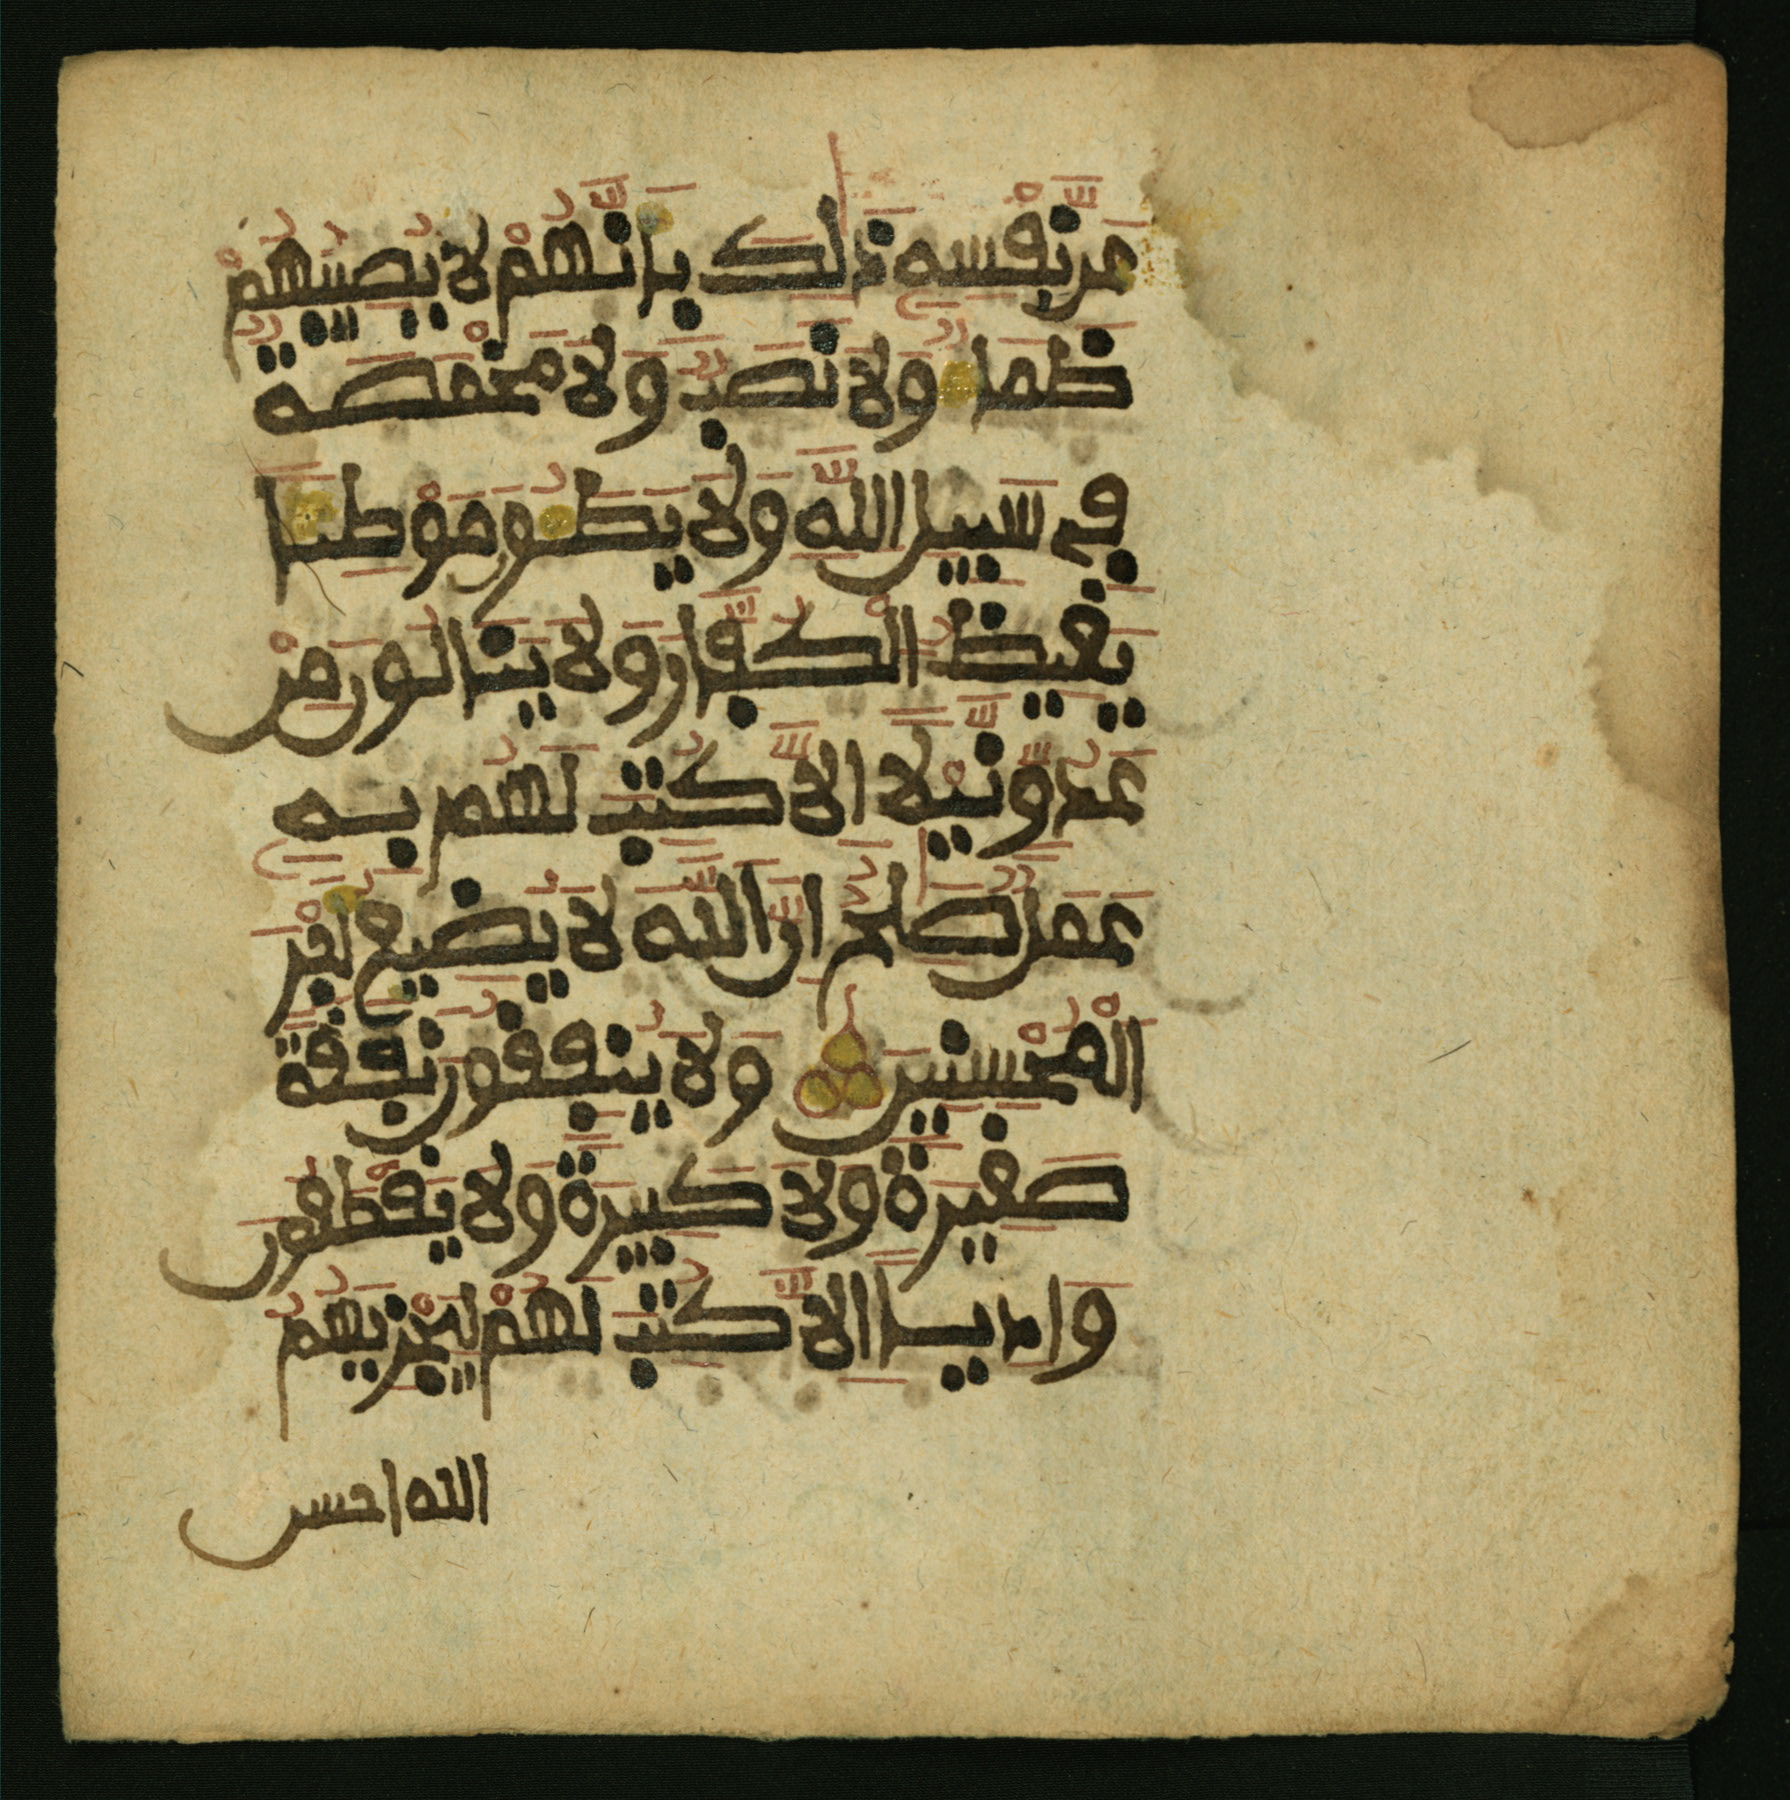 عَن نَّفْسِهِ ذَٰلِكَ بِأَنَّهُمْ لَا يُصِيبُهُمْ
ظَمَأٌ وَلَا نَصَبٌ وَلَا مَخْمَصَةٌ
فِي سَبِيلِ اللَّهِ وَلَا يَطَـُٔونَ مَوْطِئًا
يَغِيظُ الْكُفَّارَ وَلَا يَنَالُونَ مِنْ
عَدُوٍّ نَّيْلًا إِلَّا كُتِبَ لَهُم بِهِ
عَمَلٌ صَٰلِحٌ إِنَّ اللَّهَ لَا يُضِيعُ أَجْرَ
الْمُحْسِنِينَ وَلَا يُنفِقُونَ نَفَقَةً
صَغِيرَةً وَلَا كَبِيرَةً وَلَا يَقْطَعُونَ
وَادِيًا إِلَّا كُتِبَ لَهُمْ لِيَجْزِيَهُمُ
الله احسن